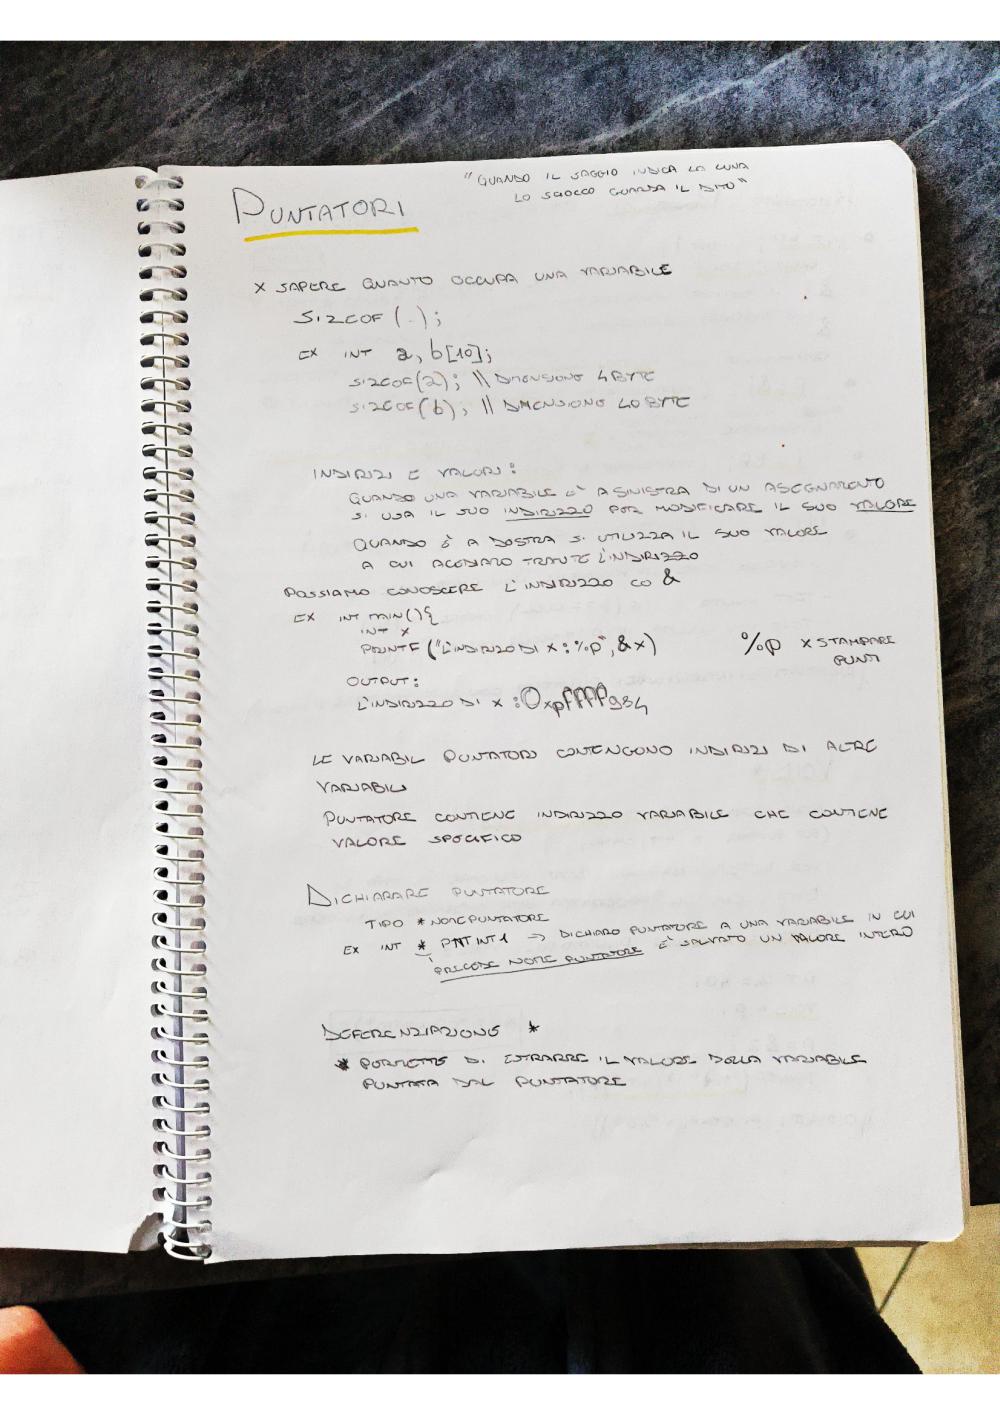 "QUANDO IL SAGGIO INDICA LA LUNA
LO SCIOCCO GUARDA IL DITO"
PUNTATORI
X SAPERE QUANTO OCCUPA UNA VARIABILE
SIZEOF(.);
EX INT a, b[10];
SIZEOF(a); // DIMENSIONE 4 BYTE
SIZEOF(b); // DIMENSIONE 40 BYTE
INDIRIZI E VALORI:
QUANDO UNA VARIABILE È A SINISTRA DI UN ASEGNAMENTO
SI USA IL SUO INDIRIZZO PER MODIFICARE IL SUO VALORE
QUANDO È A DESTRA SI UTILIZZA IL SUO VALORE
A CUI ACCEDIAMO TRAMITE L'INDIRIZZO
POSSIAMO CONOSCERE L'INDIRIZZO CO &
EX INT MIN(){
INT X
PRINTF("L'INDIRIZZO DI X : %p", &x) %p X STAMPARE
PUNT
OUTPUT:
L'INDIRIZZO DI X : 0xpffff934
LE VARIABIL PUNTATORI CONTENGONO INDIRIZI DI ALTRE
VARIABILI
PUNTATORE CONTIENE INDIRIZZO VARIABILE CHE CONTIENE
VALORE SPECIFICO
DICHIARARE PUNTATORE
TIPO * NOMEPUNTATORE
EX INT * PNTINT1 → DICHIARO PUNTATORE A UNA VARIABILE IN CUI
PRECEDE NOME PUNTATORE È SALVATO UN VALORE INTERO
DEFERENZIAZIONE *
* PERMETTE DI ESTRARRE IL VALORE DELLA VARIABILE
PUNTATA DAL PUNTATORE